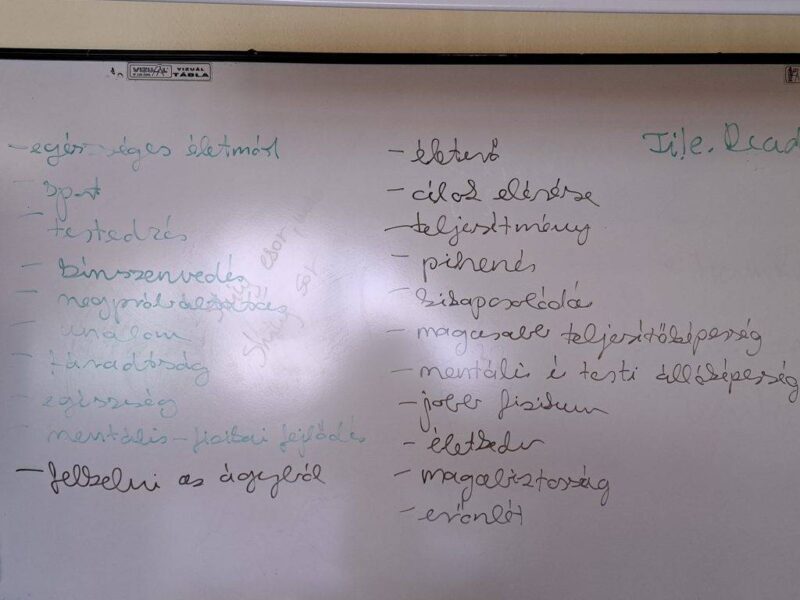 VIZUÁL
TÁBLA
- egészséges életmód
- sport
- testedzés
- kínszenvedés
- megpróbáltatás
- unalom
- fáradtság
- egészség
- mentális-fizikai fejlődés
- felkelni az ágyból
- életerő
- célok elérése
- teljesítmény
- pihenés
- kikapcsolódás
- magasabb teljesítőképesség
- mentális és testi állóképesség
- jobb fizikum
- életkedv
- magabiztosság
- erőnlét
File.Read